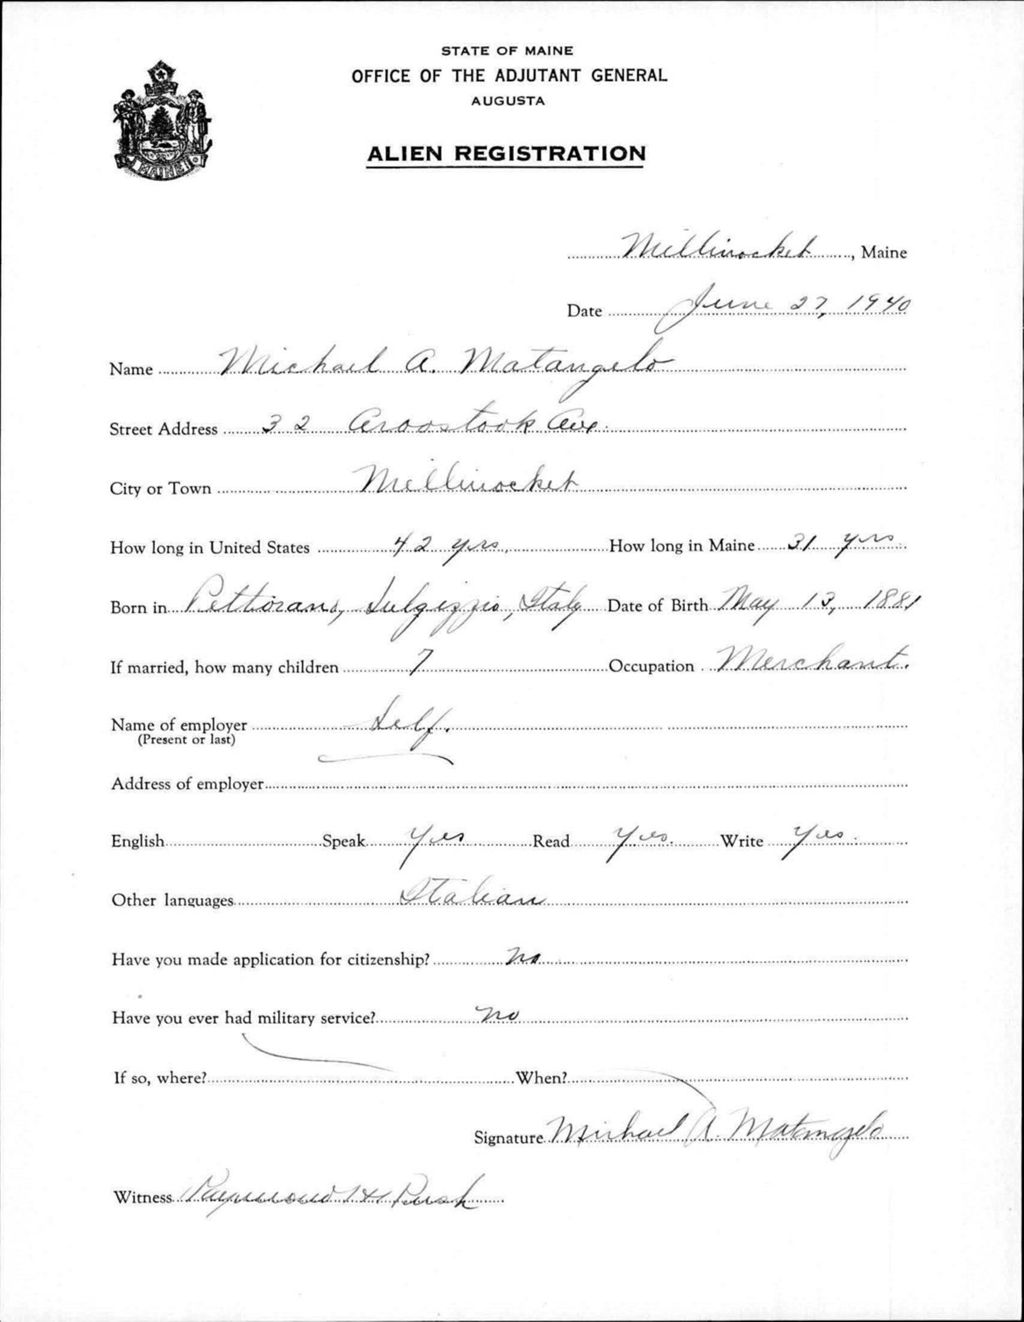 STATE OF MAINE
OFFICE OF THE ADJUTANT GENERAL
AUGUSTA
ALIEN REGISTRATION
MAINE
Millinocket, Maine
Date June 27, 1940
Name Michael A. Matangelo
Street Address 32 Aroostook Ave.
City or Town Millinocket
How long in United States 42 yrs. How long in Maine 31 yrs.
Born in Pettorano, Sulgizzio, Italy Date of Birth May 13, 1881
If married, how many children 7 Occupation Merchant.
Name of employer Self.
(Present or last)
Address of employer
English Speak Yes Read Yes. Write Yes.
Other languages Italian
Have you made application for citizenship? No
Have you ever had military service? No
If so, where? When?
Signature Michael A. Matangelo
Witness Raymond H Rush